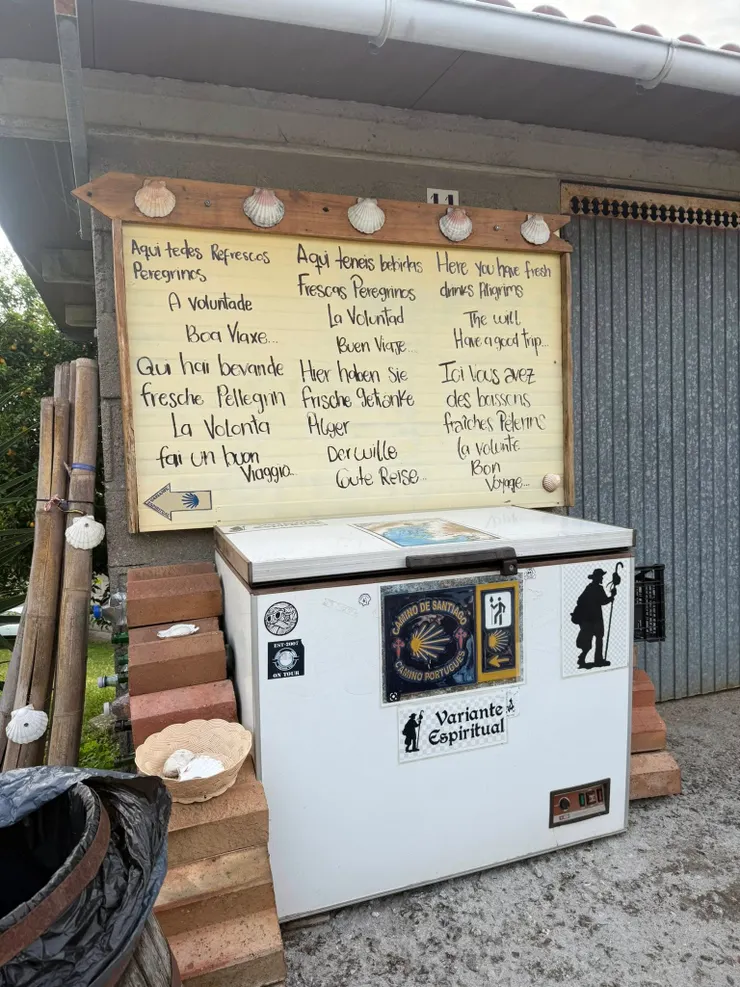 11
Aqui tedes Refrescos
Peregrinos
A voluntade
Boa Viaxe...
Aqui teneis bebidas
Frescas Peregrinos
La Voluntad
Buen Viaje...
Here you have fresh
drinks Piligrims
The will
Have a good trip...
Qui hai bevande
fresche Pellegrin
La Volonta
fai un buon
Viaggio...
Hier haben Sie
frische getranke
Pilger
Der wille
Gute Reise...
Ici vous avez
des boissons
fraîches Pelerins
la volonte
Bon
Voyage...
CAMINO DE SANTIAGO
CAMINO PORTUGUES
EST-2007
ON TOUR
Variante
Espiritual